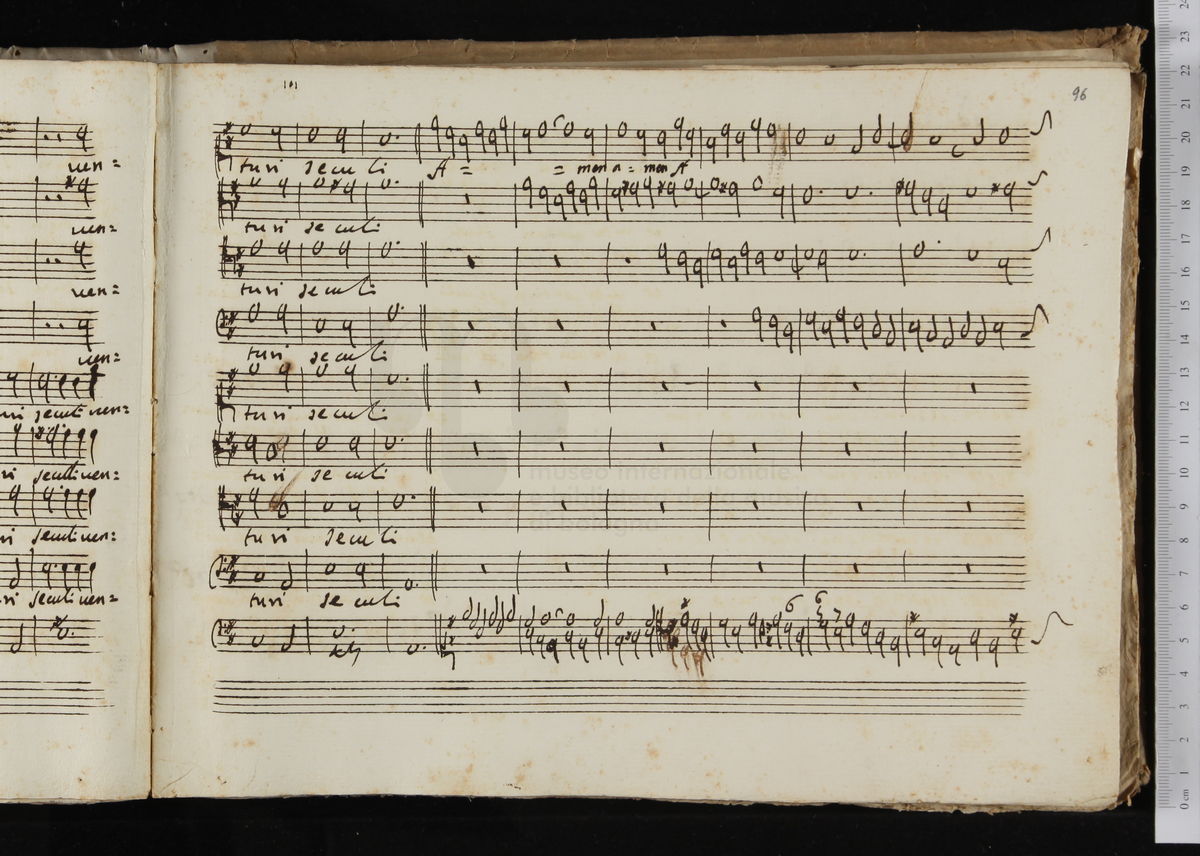 101
96
turi seculi A = = men a = men A
turi seculi
turi seculi
turi seculi
turi seculi
turi seculi
turi seculi
turi seculi
6 6 7
ven=
ven=
ven=
ven=
seculi ven=
seculi ven=
seculi ven=
seculi ven=
museo internazionale
0 cm 1 2 3 4 5 6 7 8 9 10 11 12 13 14 15 16 17 18 19 20 21 22 23 24